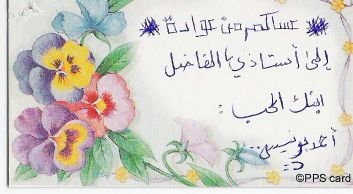 عساكم من عوادة
إلى أستاذي الفاضل
ابنك المحب :
أحمد يونسي
©PPS card